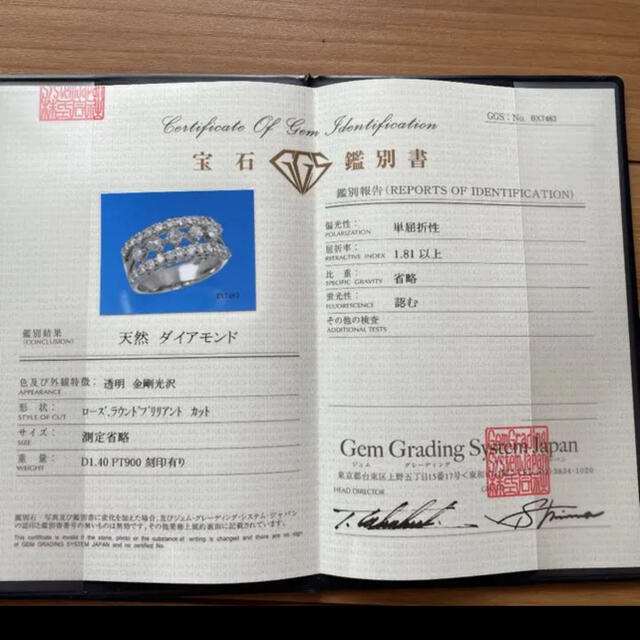 GGS : No. BX7483
Certificate Of Gem Identification
宝石 GGS 鑑別書
BX7483
鑑別結果 天然 ダイアモンド
(CONCLUSION)
色及び外観特徴: 透明 金剛光沢
APPEARANCE
形状: ローズ、ラウンドブリリアント カット
STYLE OF CUT
サイズ: 測定省略
SIZE
重量: D1.40 PT900 刻印有り
WEIGHT
鑑別石・写真及び鑑別書に変化を加えた場合、及びジェム・グレーディング・システム・ジャパン
の認印と鑑別書番号の無いものは無効です。その他業務上規約裏面に記載されています。
This certificate is invalid if the stone, photo or substance of writing is changed and there are no sign
of GEM GRADING SYSTEM JAPAN and no certified No.
鑑別報告(REPORTS OF IDENTIFICATION)
偏光性: 単屈折性
POLARIZATION
屈折率: 1.81 以上
REFRACTIVE INDEX
比重: 省略
SPECIFIC GRAVITY
蛍光性: 認む
FLUORESCENCE
その他の検査
ADDITIONAL TESTS
Gem Grading System Japan
ジェム グレーディング
東京都台東区上野五丁目15番17号
3834-1020
HEAD DIRECTOR